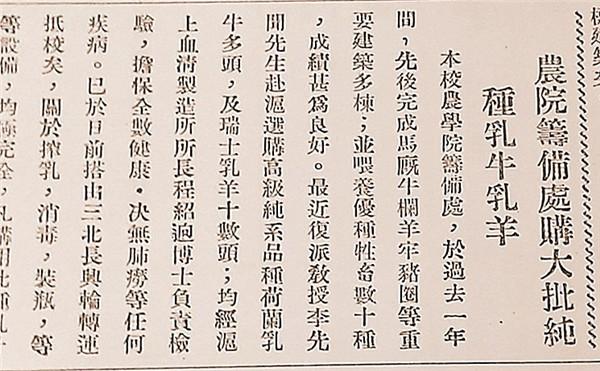 農院籌備處購大批純
種乳牛乳羊
本校農學院籌備處，於過去一年
間，先後完成馬厩牛欄羊牢豬圈等重
要建築多棟；並喂養優種牲畜數十種
，成績甚爲良好。最近復派教授李先
聞先生赴滬選購高級純系品種荷蘭乳
牛多頭，及瑞士乳羊十數頭；均經滬
上血清製造所所長程紹迥博士負責檢
驗，擔保全數健康。决無肺癆等任何
疾病。已於日前搭由三北長興輪轉運
抵校矣，關於搾乳，消毒，裝瓶，等
等設備，均極完全，凡購用此種乳